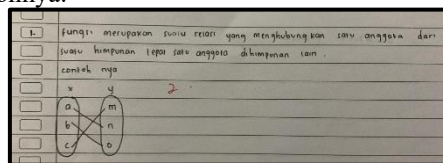 1. Fungsi merupakan suatu relasi yang menghubungkan satu anggota dari
suatu himpunan tepat satu anggota dihimpunan lain.
contoh nya
x y 2
a m
b n
c o